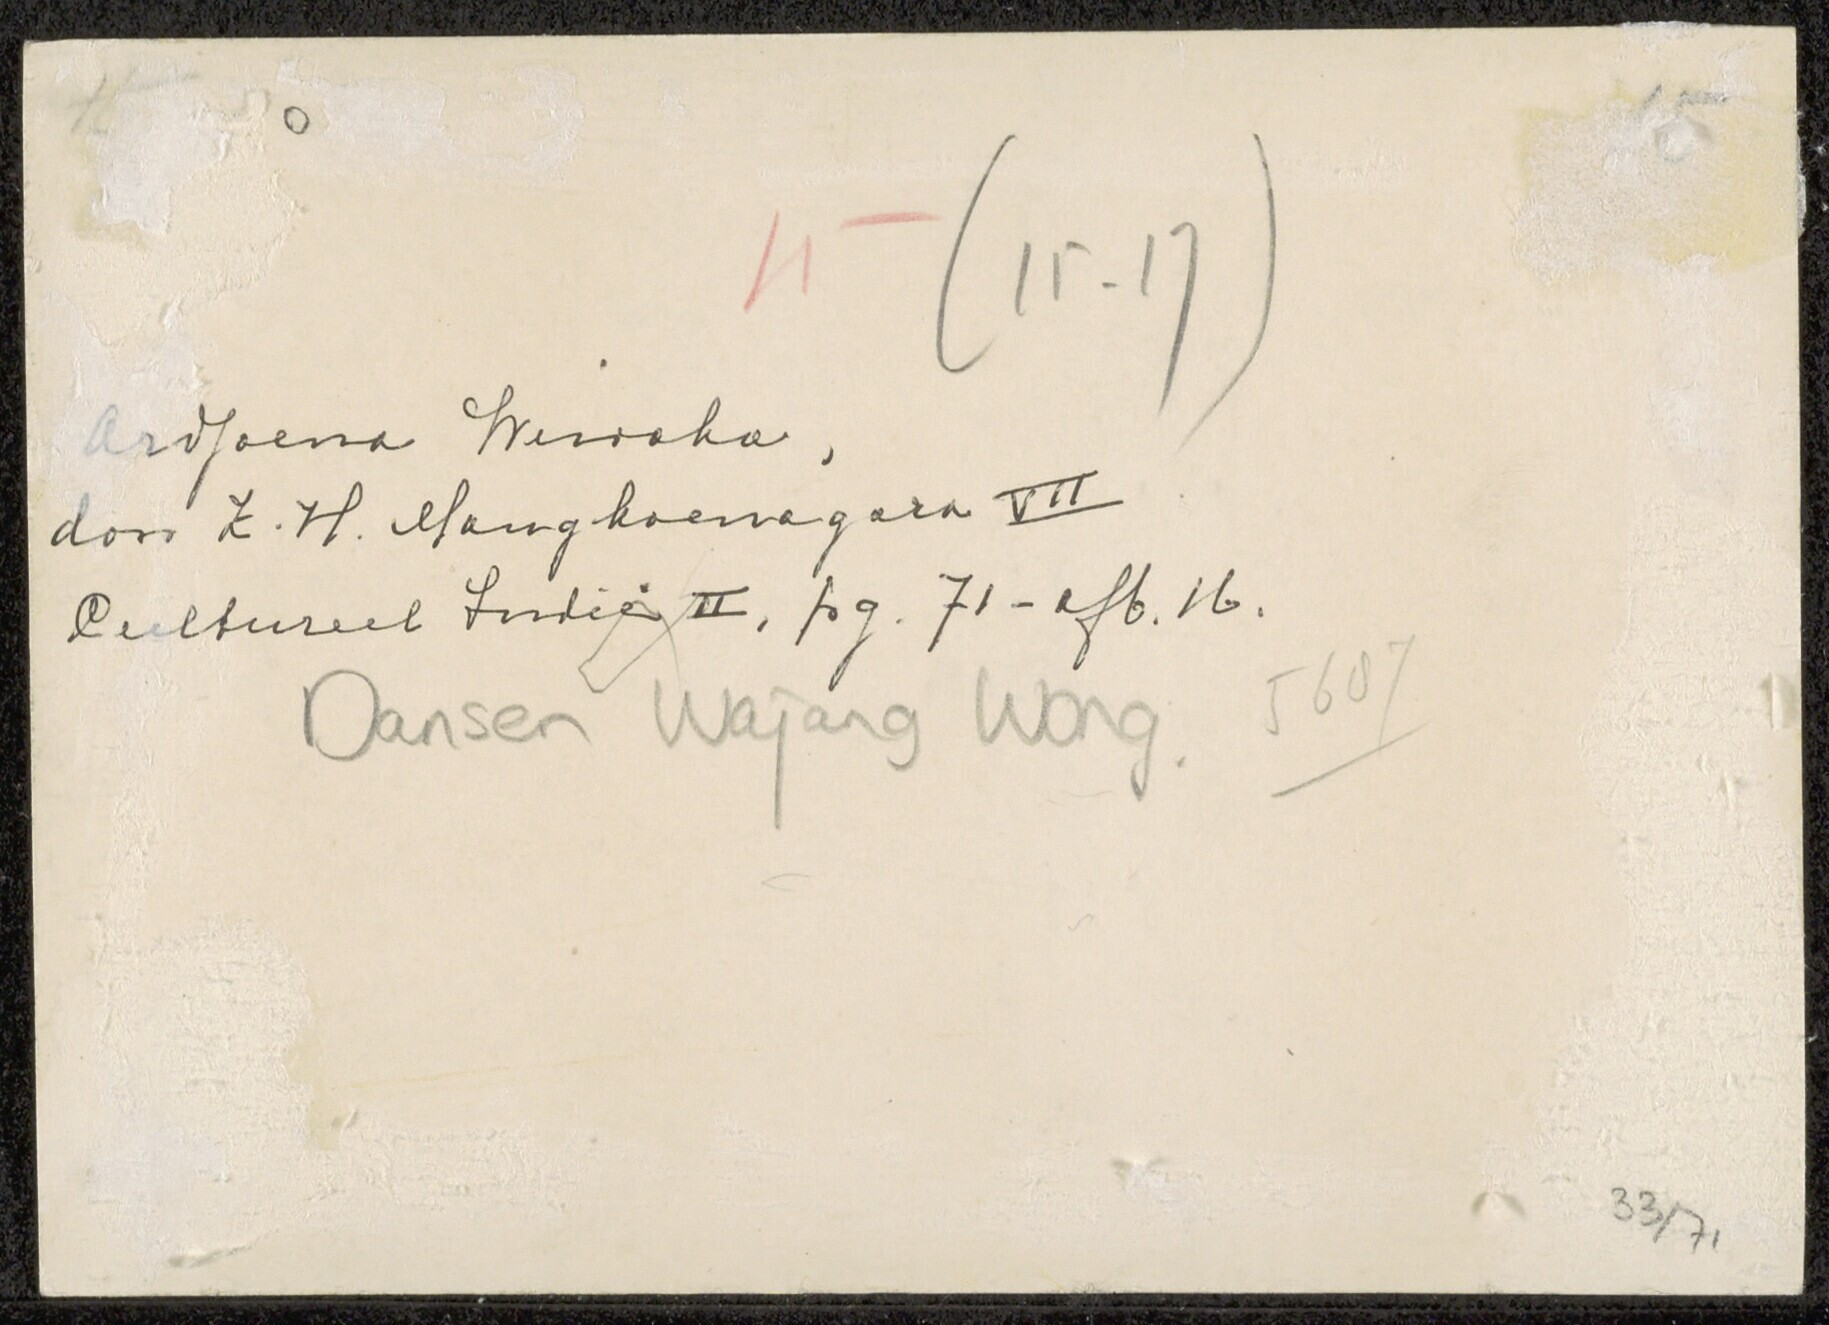 15
o
15
15 (15-17)
Ardjoena Wiwaha,
door Z.H. Mangkoenagara VII
Cultureel Indië II, pg. 71 - afb. 16.
Dansen Wajang Wong. 5687
33/71